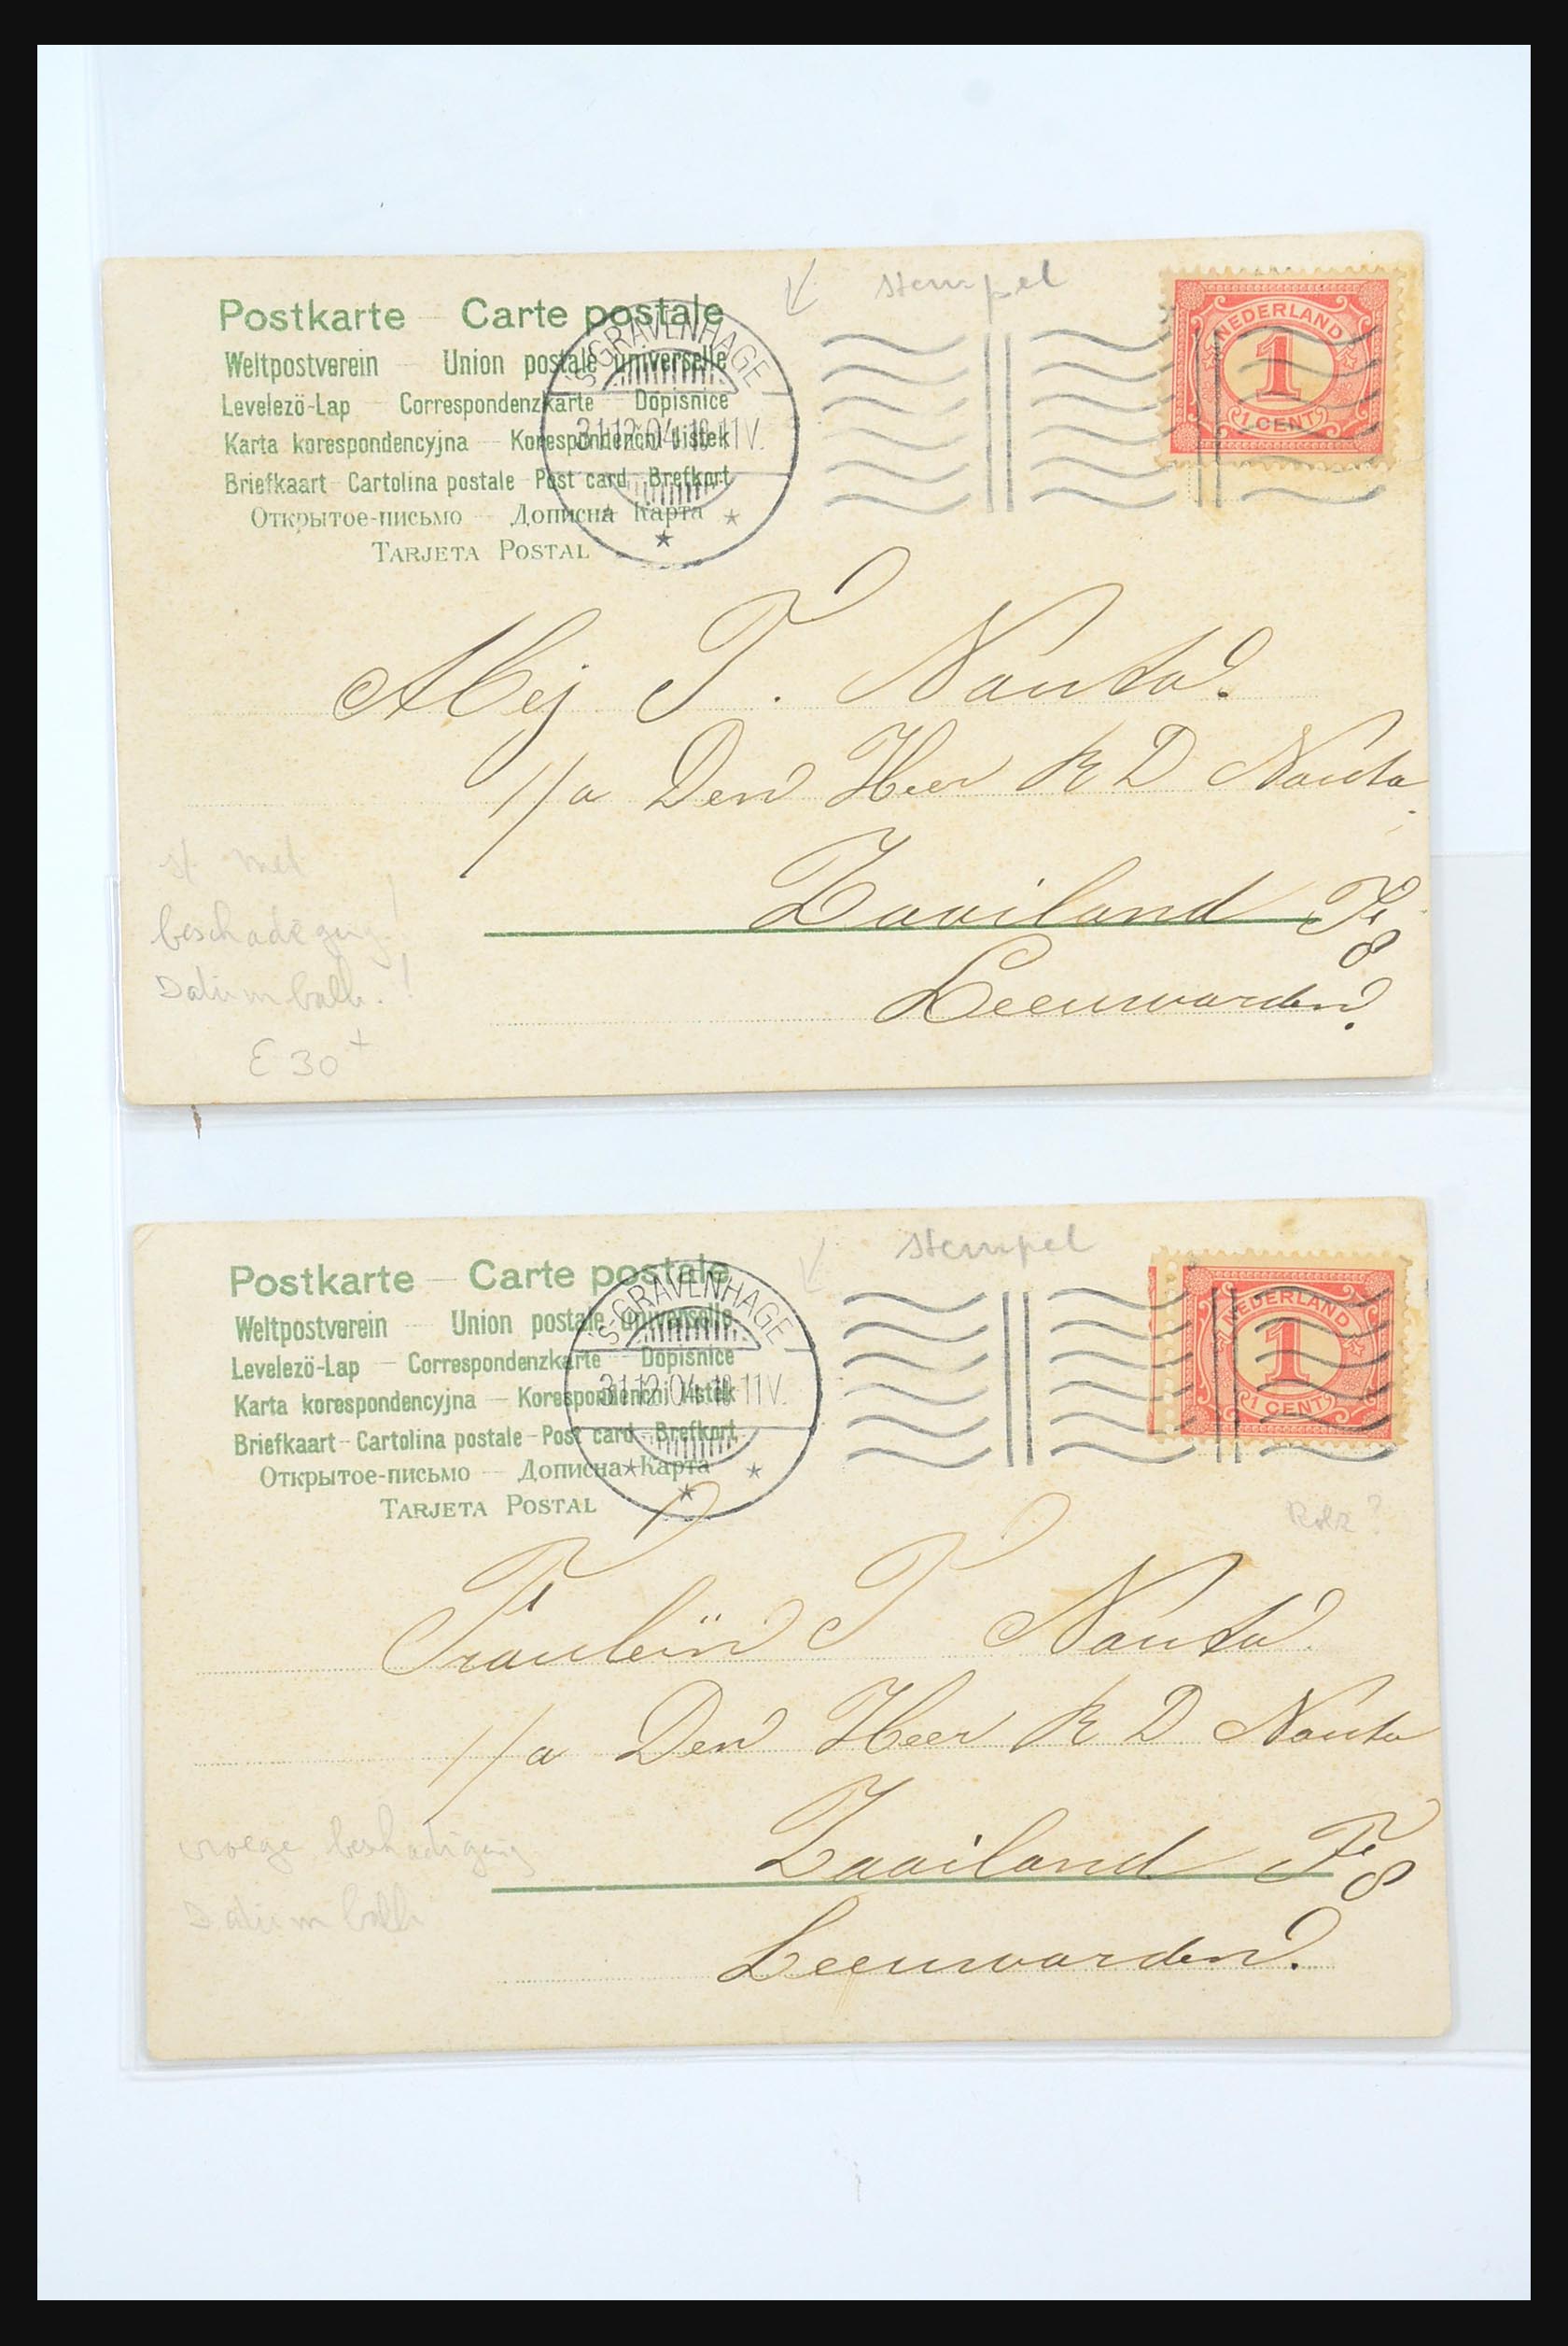 Postkarte – Carte postale
Weltpostverein – Union postale universelle
Levelezö-Lap – Correspondenzkarte – Dopisnice
Karta korespondencyjna – Korespondenční lístek
Briefkaart – Cartolina postale – Post card – Brefkort
Открытое-письмо – Дописна Карта
TARJETA POSTAL
'S-GRAVENHAGE
31.12.04 10-11V.
stempel
NEDERLAND
1
1 CENT
Mej T. Nauta.
p/a Den Heer R D Nauta
Zaailand F 8
Leeuwarden.
st met
beschadiging!
Datumbalk!
€ 30+
Postkarte – Carte postale
Weltpostverein – Union postale universelle
Levelezö-Lap – Correspondenzkarte – Dopisnice
Karta korespondencyjna – Korespondenční lístek
Briefkaart – Cartolina postale – Post card – Brefkort
Открытое-письмо – Дописна Карта
TARJETA POSTAL
'S-GRAVENHAGE
31.12.04 10-11V.
stempel
NEDERLAND
1
1 CENT
Fraulein T Nauta.
p/a Den Heer R D Nauta
Zaailand F 8
Leeuwarden.
vroege beschadiging
Datumbalk